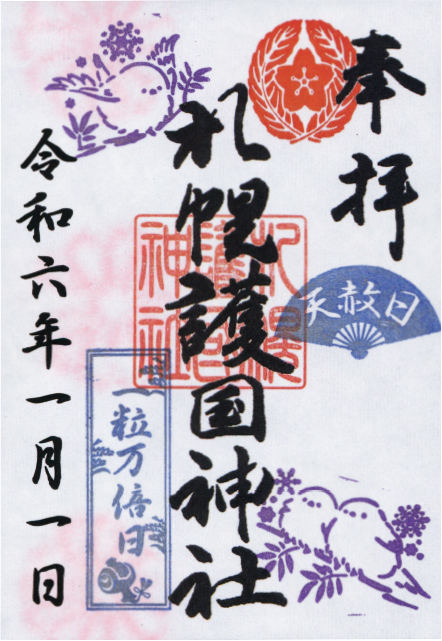 奉拝
天赦日
札幌護国神社
札幌護国神社
一粒万倍日
令和六年一月一日